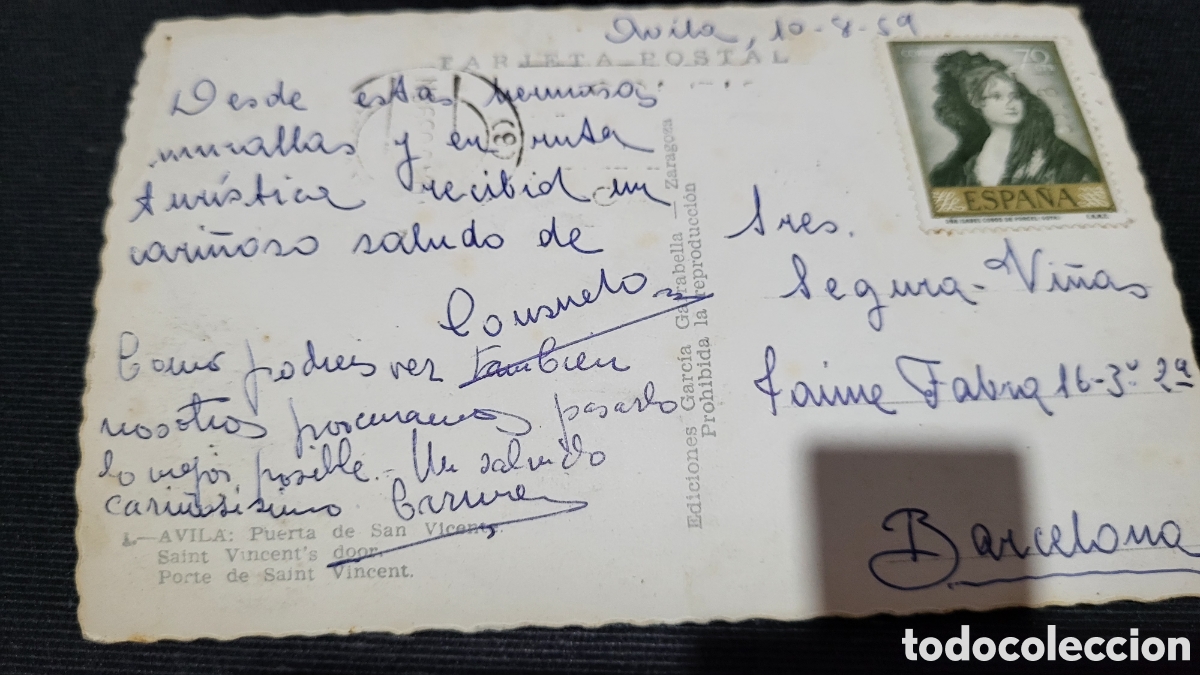 Avila, 10-8-59
TARJETA POSTAL
Desde estas hermosas
murallas y en ruta
turística recibid un
cariñoso saludo de
Consuelo
Como podreis ver tambien
nosotros procuramos pasarlo
lo mejor posible.- Un saludo
cariñosisimo Carmen
1.—AVILA: Puerta de San Vicente.
Saint Vincent's door.
Porte de Saint Vincent.
Ediciones García Garabella — Zaragoza
Prohibida la reproducción
70
ESPAÑA
Sres.
Segura-Viñas
Jaime Fabra 16-3º 2ª
Barcelona
todocoleccion